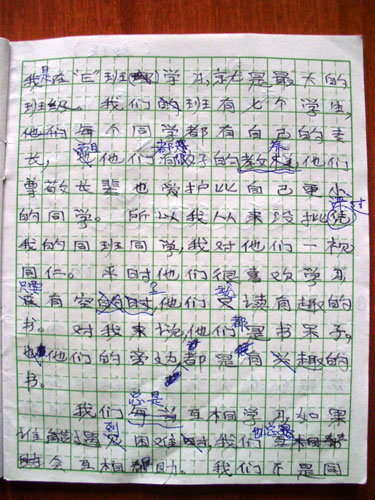 我是在"E"班学习,就是最大的
班级。我们的班有七个学生,
他们每个同学都有自己的专
长,他们都很好的教养,他们
尊敬长辈也爱护比自己更小
的同学。所以我从来没批评过
我的同班同学,我对他们一视
同仁。平时他们很喜欢学习,
只要有空的时他们又读有趣的
书。对我来说,他们都是书呆子,
他们的旁边都是有兴趣的
书。
我们总是每当互相学习,如果
谁能遇到困难时,我们
会互相帮助。我们不是同